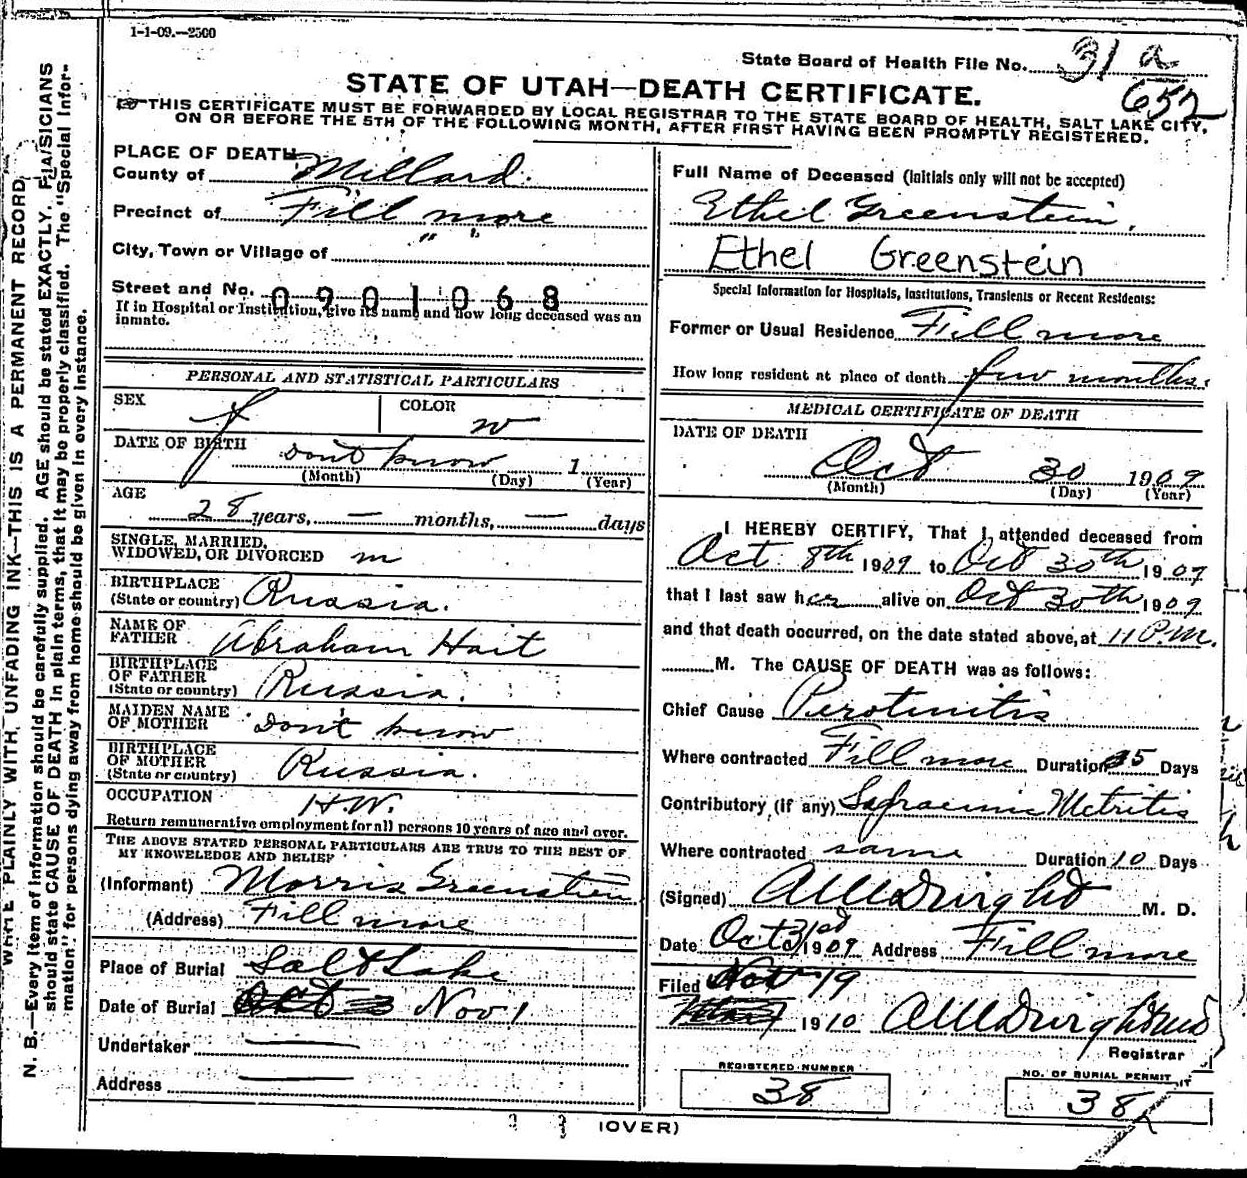 1-1-09.—2500
State Board of Health File No. 31 a
652
STATE OF UTAH—DEATH CERTIFICATE.
THIS CERTIFICATE MUST BE FORWARDED BY LOCAL REGISTRAR TO THE STATE BOARD OF HEALTH, SALT LAKE CITY,
ON OR BEFORE THE 5TH OF THE FOLLOWING MONTH, AFTER FIRST HAVING BEEN PROMPTLY REGISTERED.
PLACE OF DEATH
County of Millard.
Precinct of Fillmore
City, Town or Village of " "
Street and No. 0901068
If in Hospital or Institution, give its name and how long deceased was an
inmate.
PERSONAL AND STATISTICAL PARTICULARS
SEX f COLOR w
DATE OF BIRTH Don't know 1
(Month) (Day) (Year)
AGE
28 years, — months, — days
SINGLE, MARRIED,
WIDOWED, OR DIVORCED m
BIRTHPLACE
(State or country) Russia.
NAME OF
FATHER Abraham Hait
BIRTHPLACE
OF FATHER
(State or country) Russia.
MAIDEN NAME
OF MOTHER Don't know
BIRTHPLACE
OF MOTHER
(State or country) Russia.
OCCUPATION H.W.
Return remunerative employment for all persons 10 years of age and over.
THE ABOVE STATED PERSONAL PARTICULARS ARE TRUE TO THE BEST OF
MY KNOWELEDGE AND BELIEF
(Informant) Morris Greenstein
(Address) Fillmore
Place of Burial Salt Lake
Date of Burial Oct 3 Nov 1
Undertaker —
Address —
Full Name of Deceased (Initials only will not be accepted)
Ethel Greenstein,
Ethel Greenstein
Special Information for Hospitals, Institutions, Transients or Recent Residents:
Former or Usual Residence Fillmore
How long resident at place of death few months.
MEDICAL CERTIFICATE OF DEATH
DATE OF DEATH
Oct 30 1909
(Month) (Day) (Year)
I HEREBY CERTIFY, That I attended deceased from
Oct. 8th 1909 to Oct 30th 1909
that I last saw her alive on Oct 30th 1909
and that death occurred, on the date stated above, at 11 P.M.
M. The CAUSE OF DEATH was as follows:
Chief Cause Perotinitis
Where contracted Fillmore Duration Days
Contributory (if any) Metritis
Where contracted same Duration 10 Days
(Signed) M. D.
Date Oct 31 1909 Address Fillmore
Filed Nov 19
1910
Registrar
REGISTERED NUMBER
38
NO. OF BURIAL PERMIT
38
(OVER)
N. B.—Every item of information should be carefully supplied. AGE should be stated EXACTLY. PHYSICIANS
should state CAUSE OF DEATH in plain terms, that it may be properly classified. The "Special Infor-
mation" for persons dying away from home should be given in every instance.
WRITE PLAINLY WITH UNFADING INK—THIS IS A PERMANENT RECORD